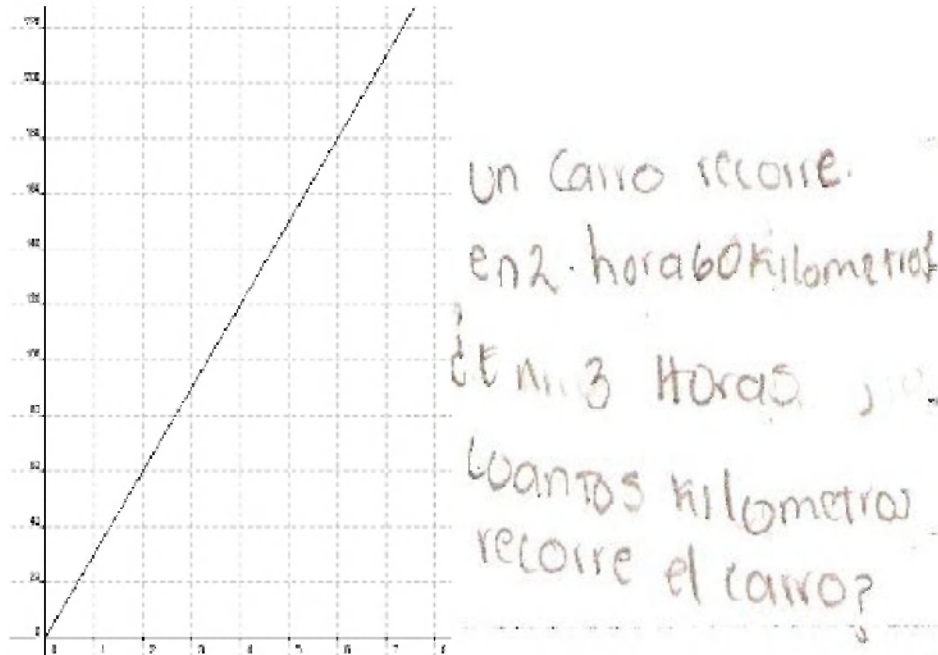 220
200
180
160
140
120
100
80
60
40
20
0
0 1 2 3 4 5 6 7 8
un carro recorre.
en 2. hora 60 Kilometros
¿En 3 Horas,
cuantos kilometros
recorre el carro?